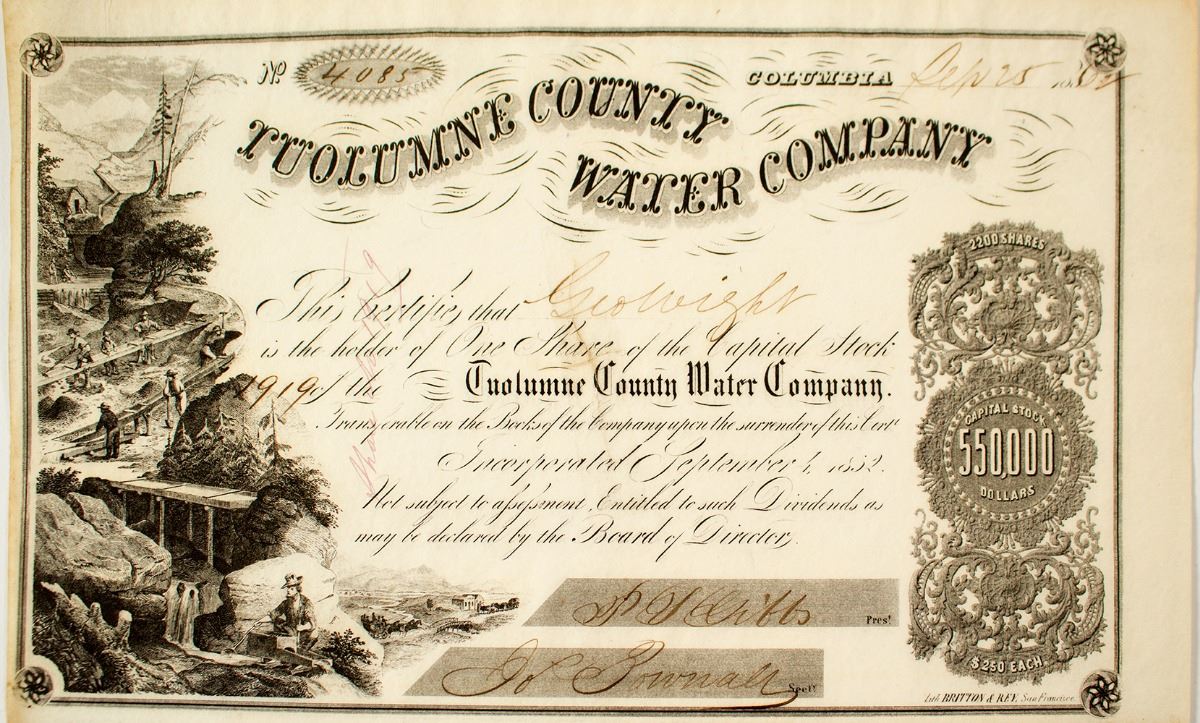 No. 4085
COLUMBIA Sep 25 18
TUOLUMNE COUNTY
WATER COMPANY
2200 SHARES
This Certifies that Geo Wright
is the holder of One Share of the Capital Stock
1919 of the Tuolumne County Water Company.
Transferable on the Books of the Company upon the surrender of this Certt
Incorporated September 1, 1852.
Not subject to assessment, Entitled to such Dividends as
may be declared by the Board of Directors.
CAPITAL STOCK
550,000
DOLLARS
Prest
Secty
$250 EACH
Lith. BRITTON & REY. San Francisco.